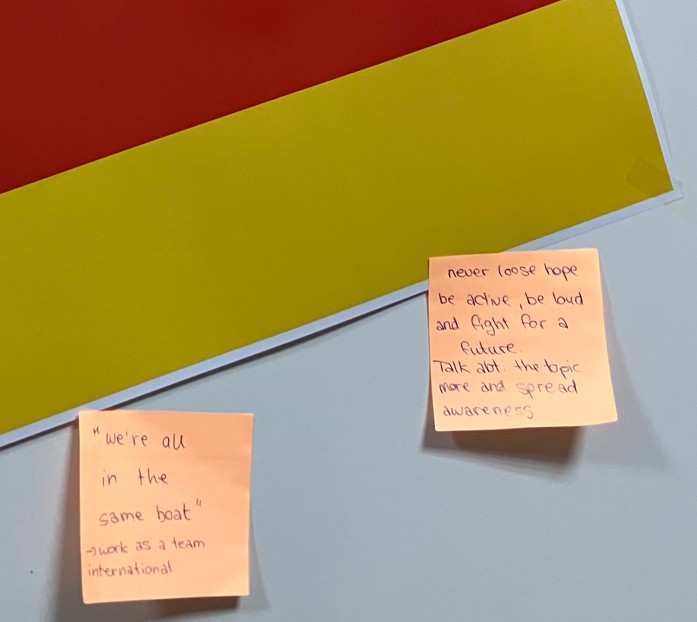 "we're all
in the
same boat"
→work as a team
international
never loose hope
be active, be loud
and fight for a
future.
Talk abt. the topic
more and spread
awareness